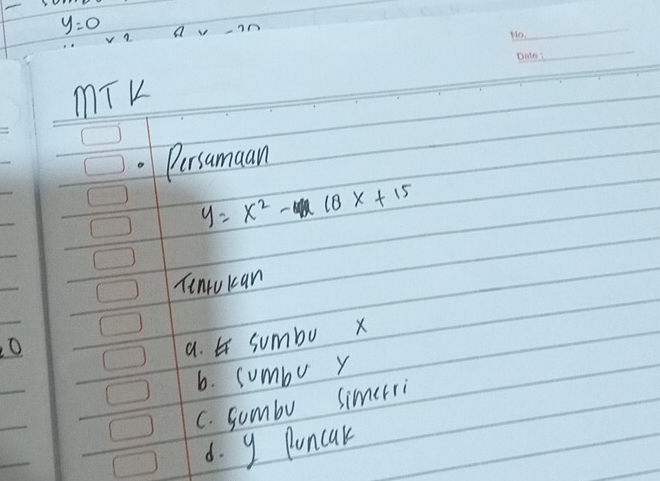 y=0
No.
Date:
MTK
• Persamaan
y = x² - 18 x + 15
Tentukan
a. sumbu x
b. sumbu y
c. sumbu simetri
d. y Puncak